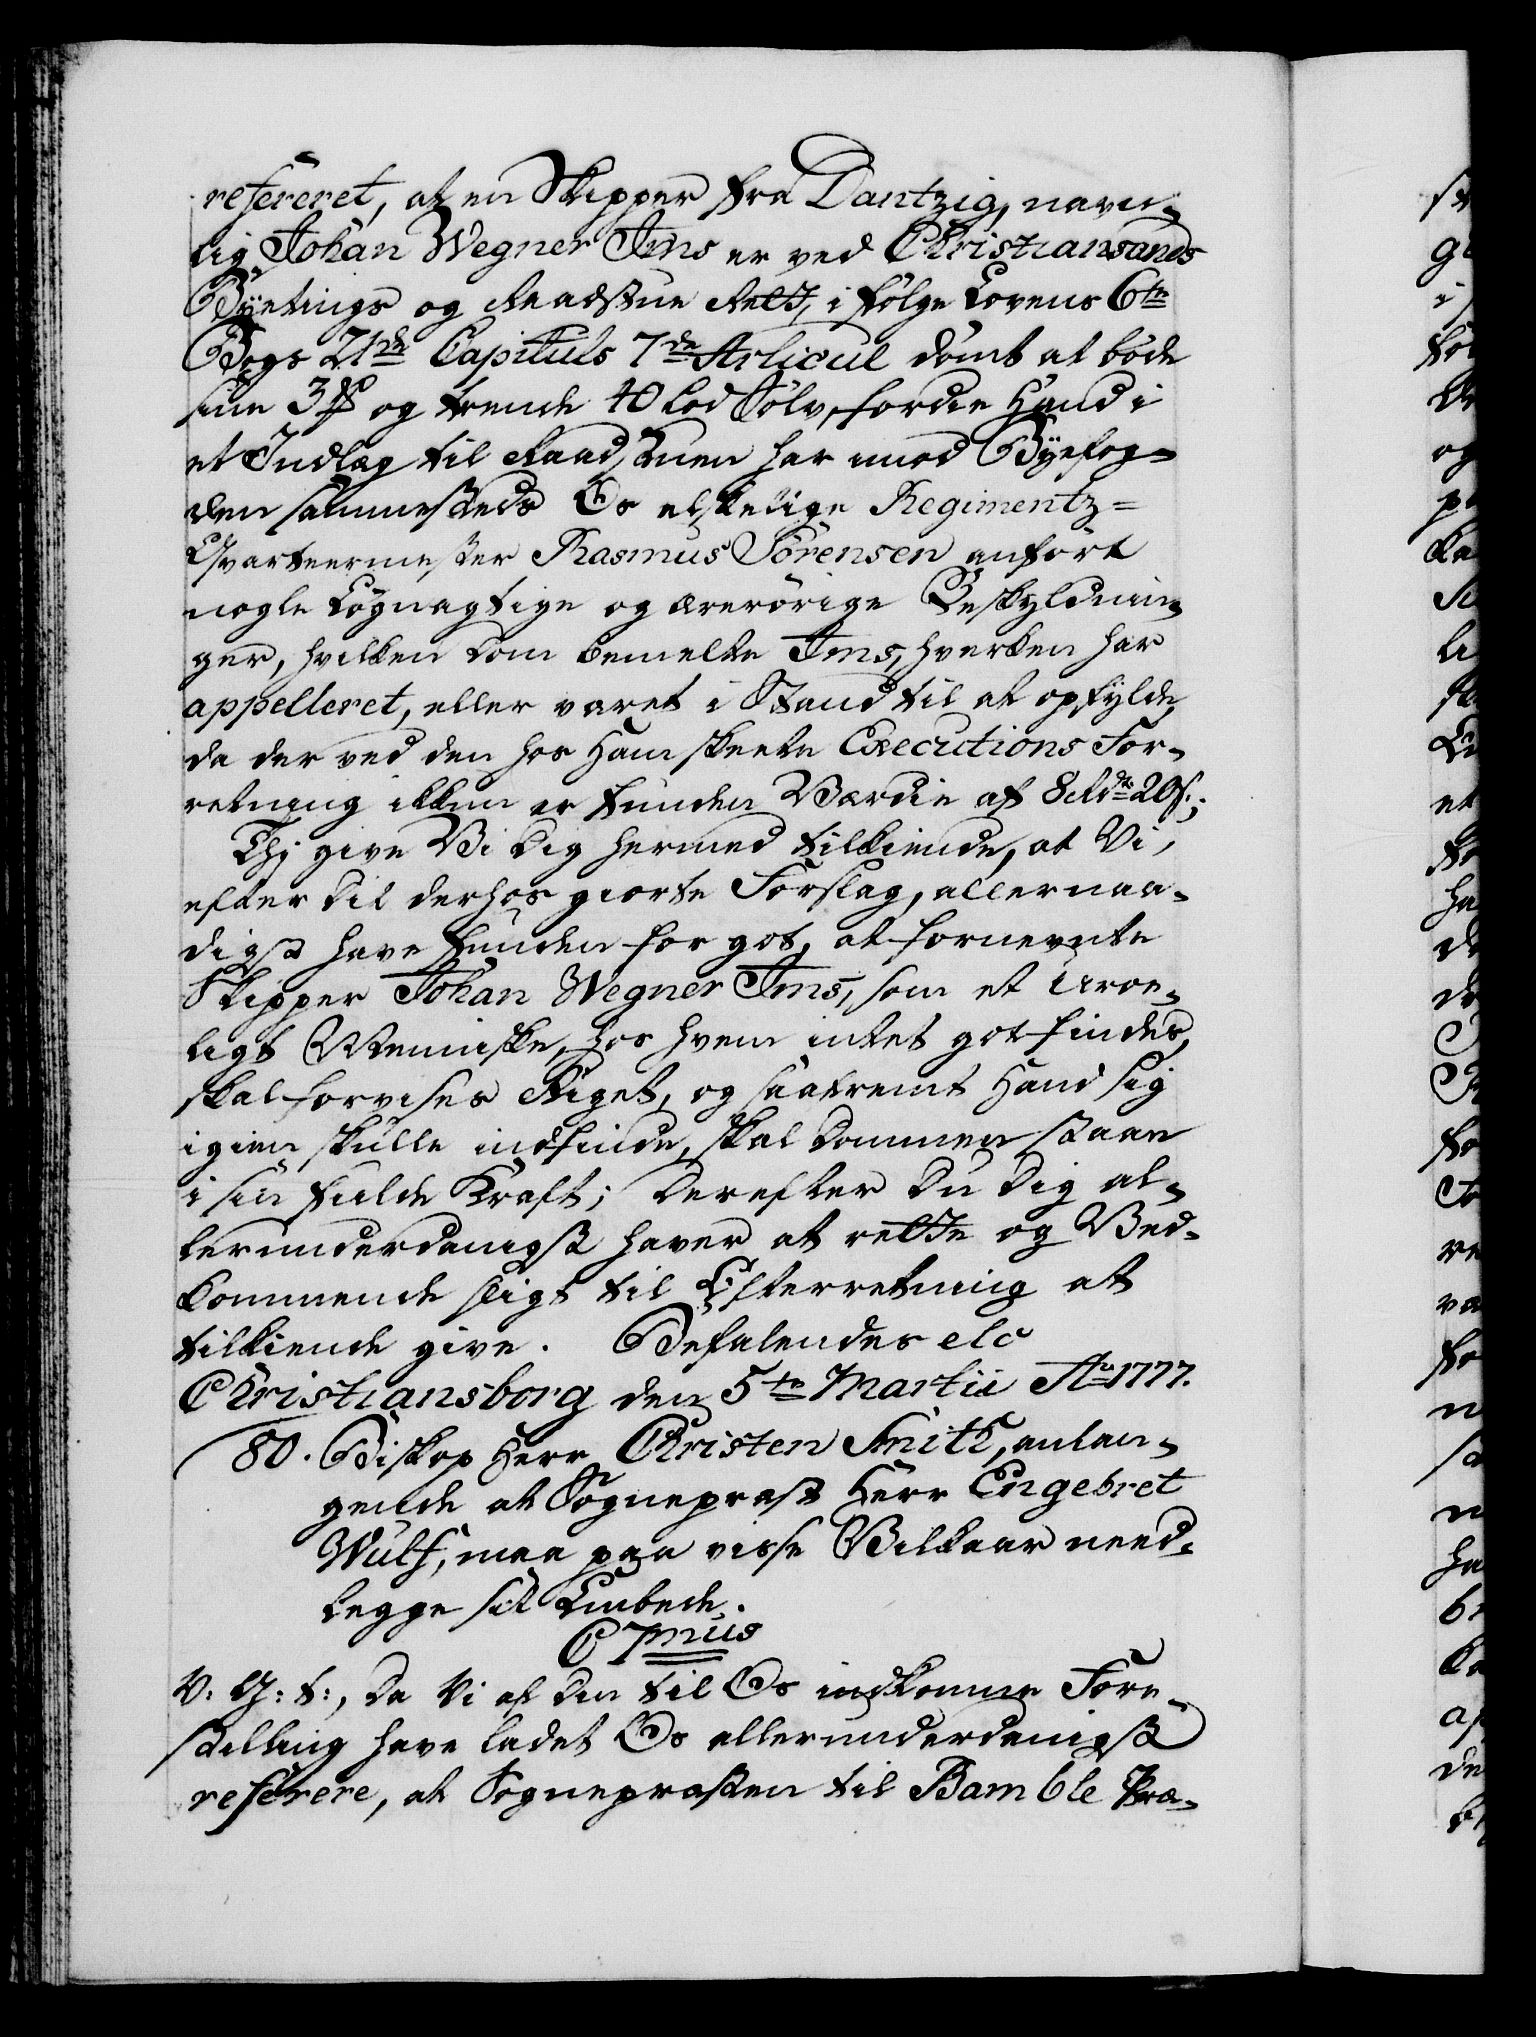 refereret, at en Skipper fra Dantzig, navn-
lig Johan Wegner Ims er ved Christiansands
Byetings og Raadstue Rett, i følge Lovens 6te
Bogs 21de Capituls 7de Articul dømt at bøde
sine 3 og trende 40 Lod Sølv, fordie Hand i
et Indlæg til Raadstuen har imod Byefog-
den sammesteds Os elskelige Regimentz-
Qvarteermester Rasmus Sørensen anført
nogle Løgnagtige og ærerørige Beskyldnin-
ger, hvilken Dom bemelte Ims, hverken har
appelleret, eller været i Stand til at opfylde,
da der ved den hos Ham skeete Executions For-
retning ikkun er funden Værdie af 8 Rdr 20 s.;
Thj give Vi Dig hermed tilkiende, at Vi,
efter Dit derhos giorte Forslag, allernaa-
digst have funden for got, at fornevnte
Skipper Johan Wegner Ims, som et Uroe-
ligt Menniske, hos hvem intet got findes,
skal forvises Riget, og saafremt Hand sig
igien skulle indfinde, skal Dommen staae
i sin fulde Kraft; Derefter Du Dig al-
lerunderdanigst haver at rette og Ved-
kommende sligt til Efterretning at
tilkiende give. Befalendes etc
Christiansborg den 5te Martii Ao 1777.
80. Biskop Herr Christen Smith, anlan-
gende at Sognepræst Herr Engebret
Wulf, maa paa visse Vilkaar need-
legge sit Embede.
C 7mus
V: G: t:, Da Vi af Din til Os indkomne Fore-
stilling have ladet Os allerunderdanigst
referere, at Sognepræsten til Bamble Præ-